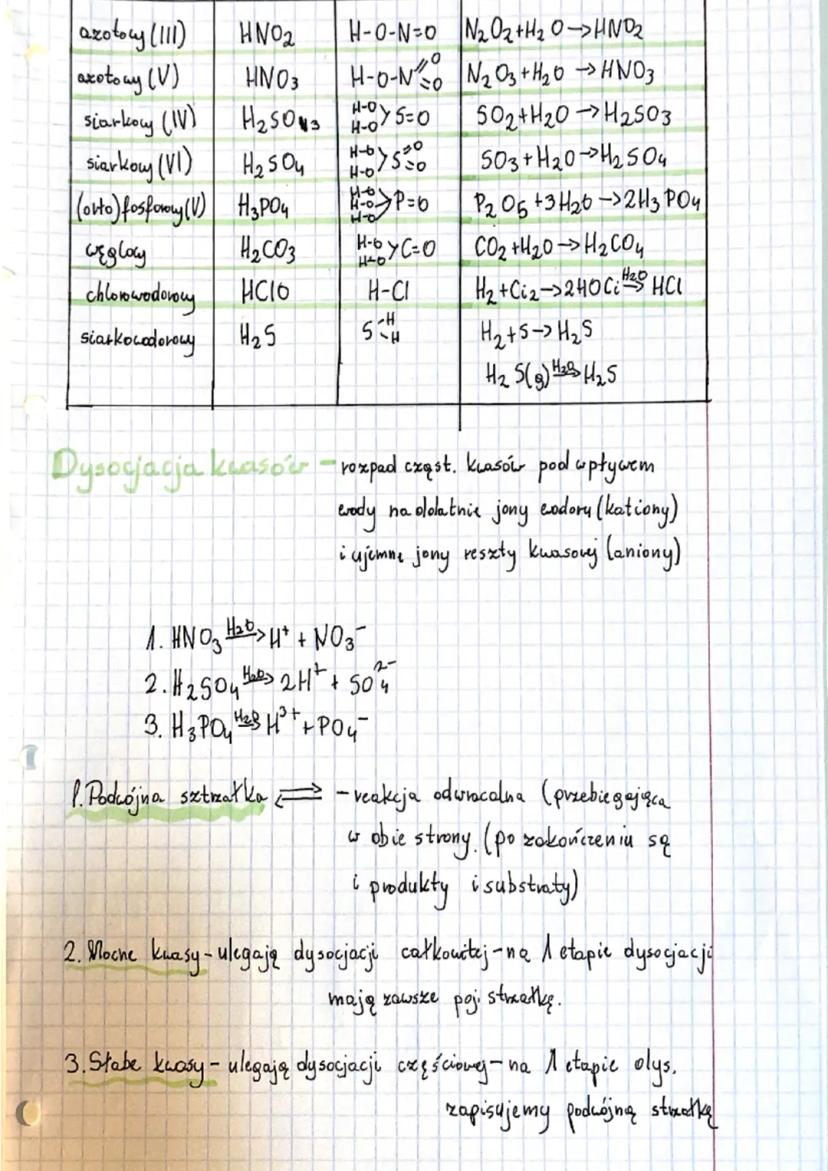 azotowy (III) HNO₂ H-O-N=O N₂O₂+H₂O→HNO₂
azotowy (V) HNO₃ H-O-N=O =O N₂O₃+H₂O→HNO₃
siarkowy (IV) H₂SO₃ H-O H-O >S=O SO₂+H₂O→H₂SO₃
siarkowy (VI) H₂SO₄ H-O H-O >S=O =O SO₃+H₂O→H₂SO₄
(orto)fosforowy(V) H₃PO₄ H-O H-O H-O >P=O P₂O₅+3H₂O→2H₃PO₄
węglowy H₂CO₃ H-O H-O >C=O CO₂+H₂O→H₂CO₄
chlorowodorowy HClO H-Cl H₂+Ci₂→2HOCi H₂O→ HCl
siarkowodorowy H₂S S-H -H H₂+S→H₂S
H₂S(g) H₂O→ H₂S
Dysocjacja kwasów - rozpad cząst. kwasów pod wpływem
wody na dodatnie jony wodoru (kationy)
i ujemne jony reszty kwasowej (aniony)
1. HNO₃ H₂O→ H⁺ + NO₃⁻
2. H₂SO₄ H₂O→ 2H⁺ + SO₄²⁻
3. H₃PO₄ H₂O→ H³⁺ + PO₄⁻
1. Podwójna sztrzałka ⇄ - reakcja odwracalna (przebiegająca
w obie strony. (po zakończeniu są
i produkty i substraty)
2. Mocne kwasy - ulegają dysocjacji całkowitej - na 1 etapie dysocjacji
mają zawsze poj. strzałkę.
3. Słabe kwasy - ulegają dysocjacji częściowej - na 1 etapie dys.
zapisujemy podwójną strzałkę